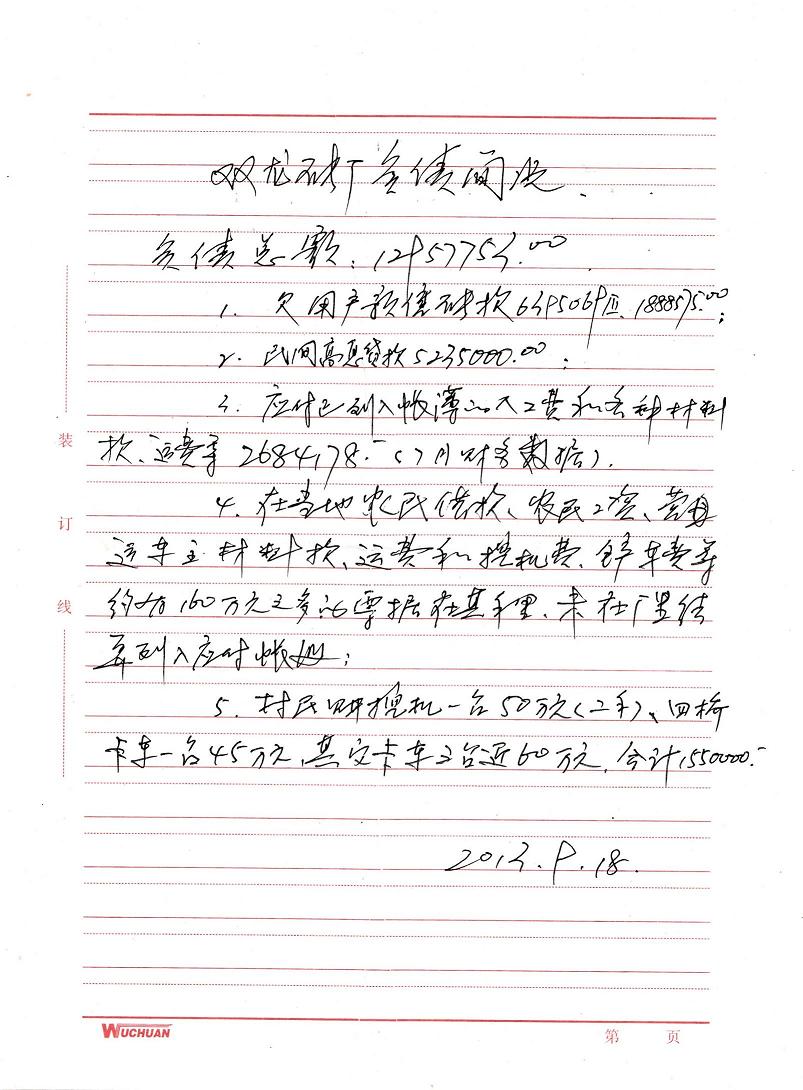 双龙砖厂负债简况
负债总额:12957753.00
1. 欠用户预售砖款 匹、1888575.00;
2. 民间高息贷款5235000.00;
3. 应付已列入帐薄的人工费和各种材料
款、运费等2684178.-(7月财务数据).
4. 在当地农民借款、农民工资、营
运车主材料款、运费和挖机费、铲车费等
约有160万元之多的票据在其手里、未在厂里结
算列入应付帐;
5. 村民购挖机一台50万元(二手)、四桥
卡车一台45万元、其它卡车3台近60万元,合计1550000.-
2013.9.18.
装
订
线
WUCHUAN
第 页